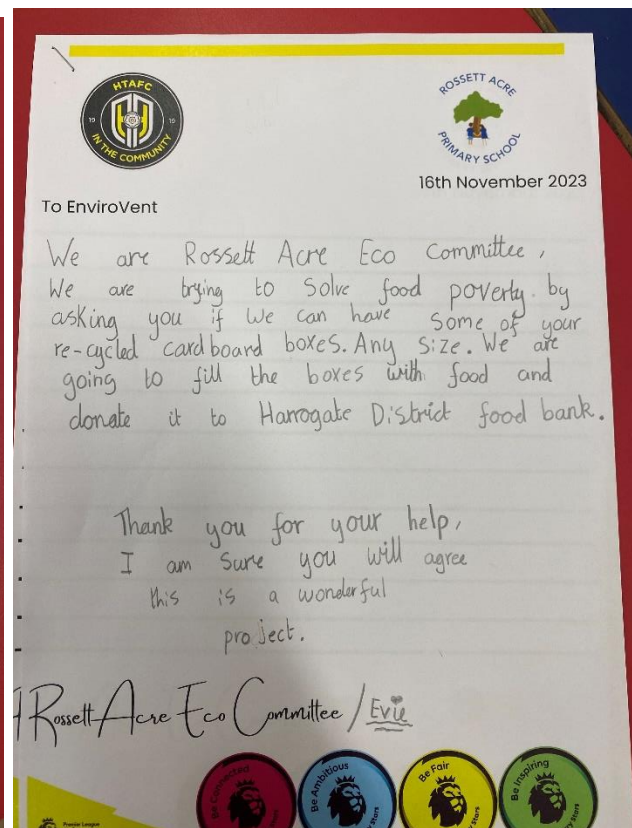 HTAFC
19 19
IN THE COMMUNITY
ROSSETT ACRE
PRIMARY SCHOOL
16th November 2023
To EnviroVent
We are Rossett Acre Eco Committee,
We are trying to solve food poverty by
asking you if we can have some of your
re-cycled cardboard boxes. Any size. We are
going to fill the boxes with food and
donate it to Harrogate District food bank.
Thank you for your help,
I am sure you will agree
this is a wonderful
project.
Rossett Acre Eco Committee / Evie
Be Connected
Be Ambitious
Be Fair
Be Inspiring
Premier League